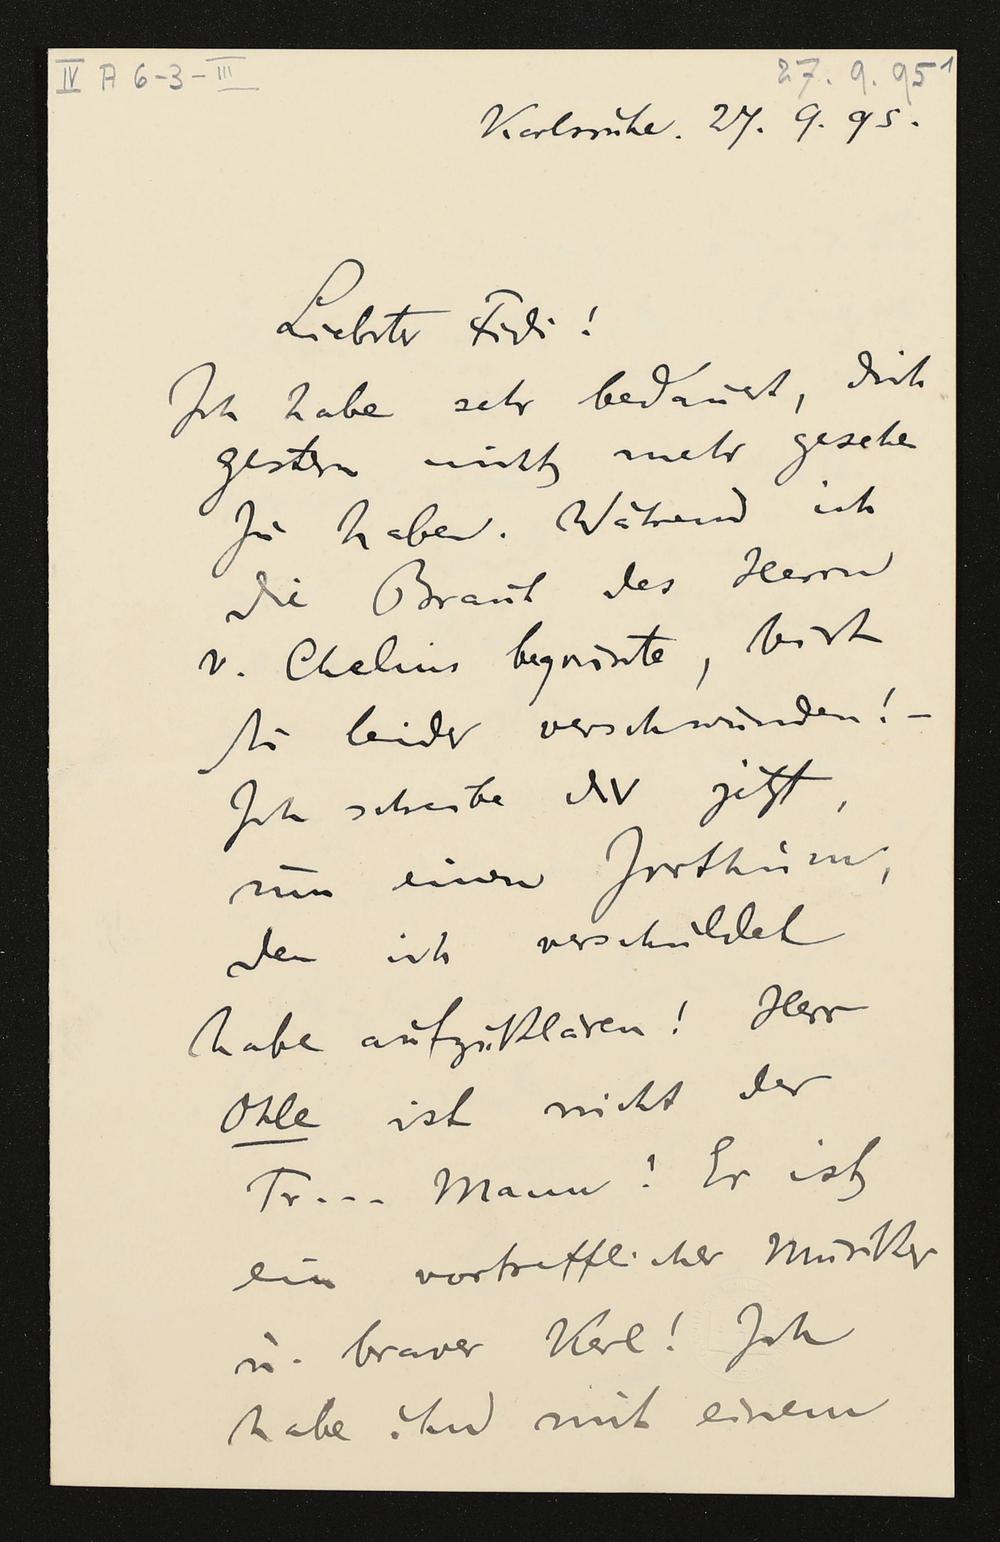 IV A 6-3-III
27. 9. 95¹
Karlsruhe. 27. 9. 95.
Liebster Fidi!
Ich habe sehr bedauert, dich
gestern nicht mehr gesehe
zu haben. Während ich
die Braut des Herrn
v. Chelius begrüsste, bist
du leider verschwunden! –
Ich schreibe dir jetzt,
um einen Irrthum,
den ich verschuldet
habe aufzuklären! Herr
Ohle ist nicht der
Tr--- Mann! Er ist
ein vortrefflicher Musiker
u. braver Kerl! Ich
habe ihn mit einem